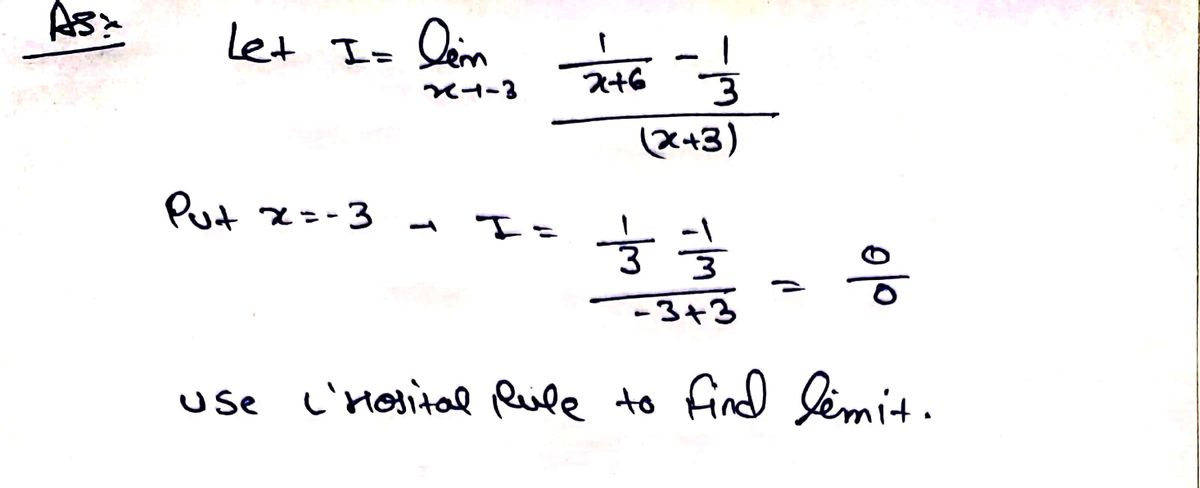 As:-
Let I = lim x→-3 (1/(x+6) - 1/3)/(x+3)
Put x=-3 → I = (1/3 -1/3)/(-3+3) = 0/0
use L'Hosital Rule to find limit.